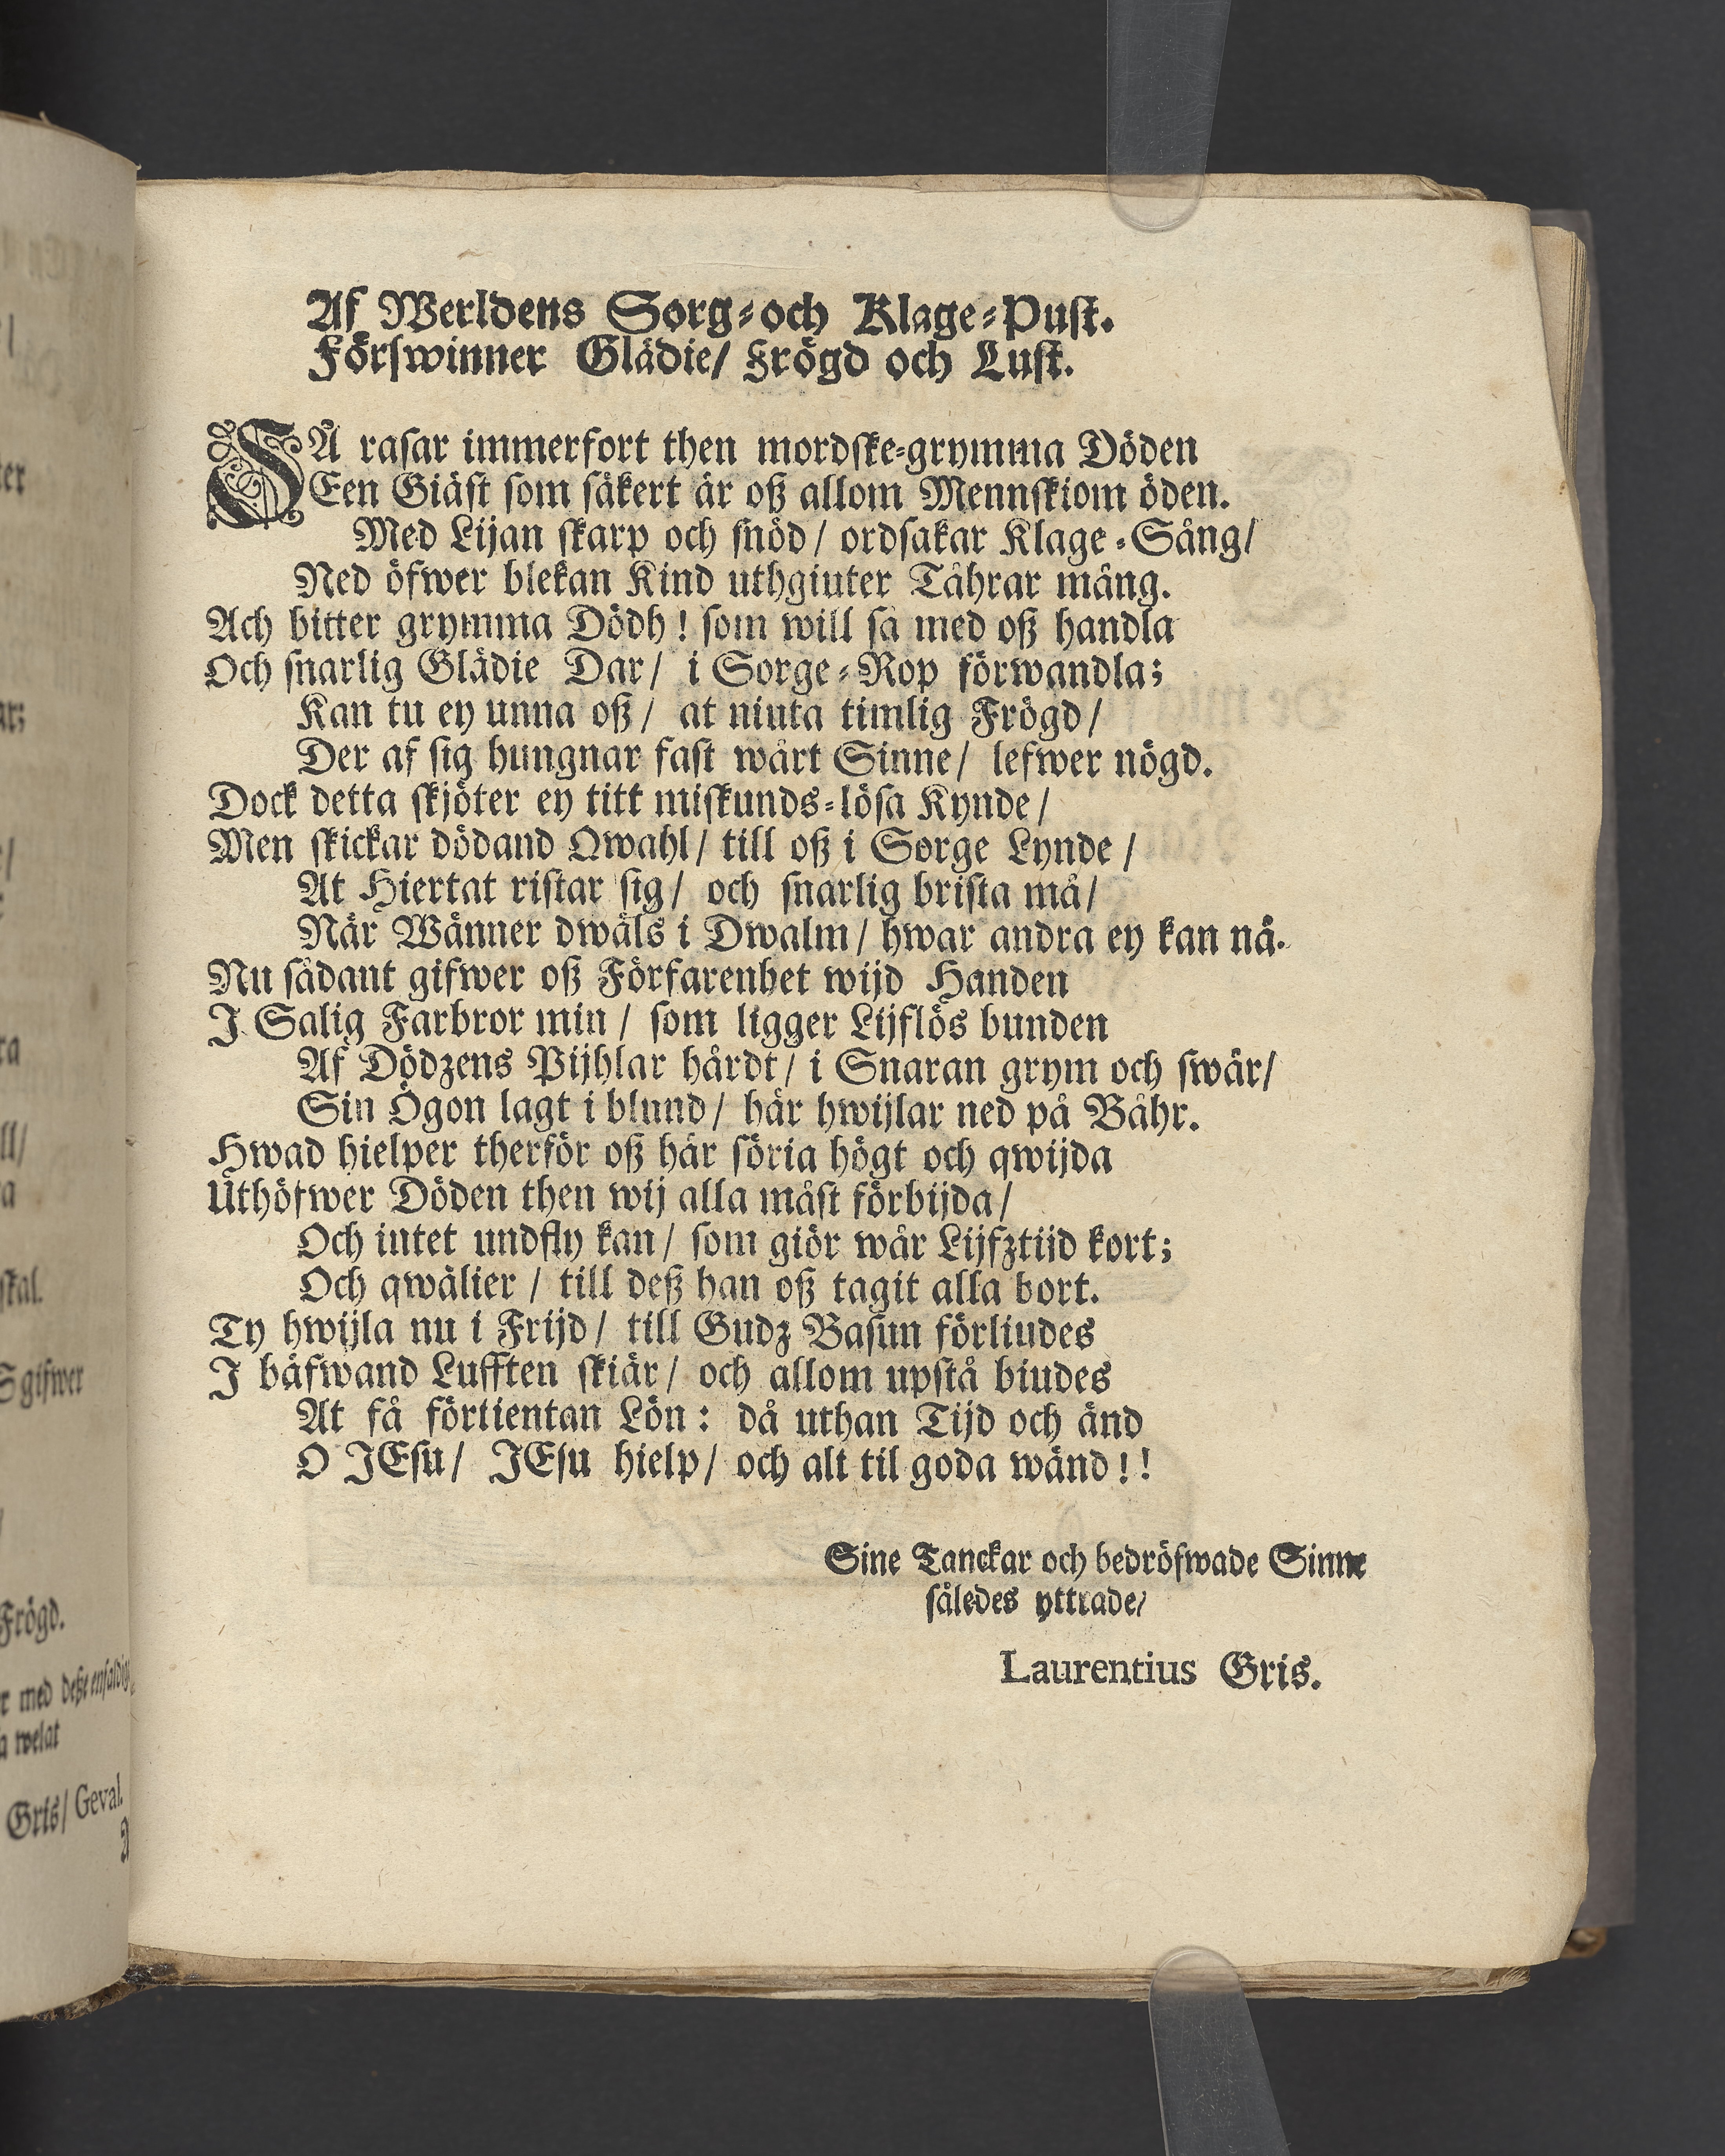 ter
ar;
ra
ll/
a
skal.
S gifwer
Frögd.
r med deße enfaldig
a welat
Gris/ Geval.
Af Werldens Sorg-och Klage-Pust.
Förswinner Glädie/ Frögd och Lust.
SÅ rasar immerfort then mordske-grymma Döden
Een Giäst som säkert är oß allom Mennskiom öden.
Med Lijan skarp och snöd/ ordsakar Klage-Sång/
Ned öfwer blekan Kind uthgiuter Tåhrar mång.
Ach bitter grymma Dödh! som will så med oß handla
Och snarlig Glädie Dar/ i Sorge-Rop förwandla;
Kan tu ey unna oß/ at niuta timlig Frögd/
Der af sig hungnar fast wårt Sinne/ lefwer nögd.
Dock detta skjöter ey titt miskunds-lösa Kynde/
Men skickar dödand Qwahl/ till oß i Sorge Lynde/
At Hiertat ristar sig/ och snarlig brista må/
När Wänner dwäls i Dwalm/ hwar andra ey kan nå.
Nu sådant gifwer oß Förfarenhet wijd Handen
J Salig Farbror min/ som ligger Lijflös bunden
Af Dödzens Pijhlar hårdt/ i Snaran grym och swår/
Sin Ögon lagt i blund/ här hwijlar ned på Båhr.
Hwad hielper therför oß här söria högt och qwijda
Uthöfwer Döden then wij alla måst förbijda/
Och intet undfly kan/ som giör wår Lijfztijd kort;
Och qwälier/ till deß han oß tagit alla bort.
Ty hwijla nu i Frijd/ till Gudz Basun förliudes
J bäfwand Lufften skiär/ och allom upstå biudes
At få förtientan Lön: då uthan Tijd och änd
O JEsu/ JEsu hielp/ och alt til goda wänd!!
Sine Tanckar och bedröfwade Sinne
således yttrade/
Laurentius Gris.